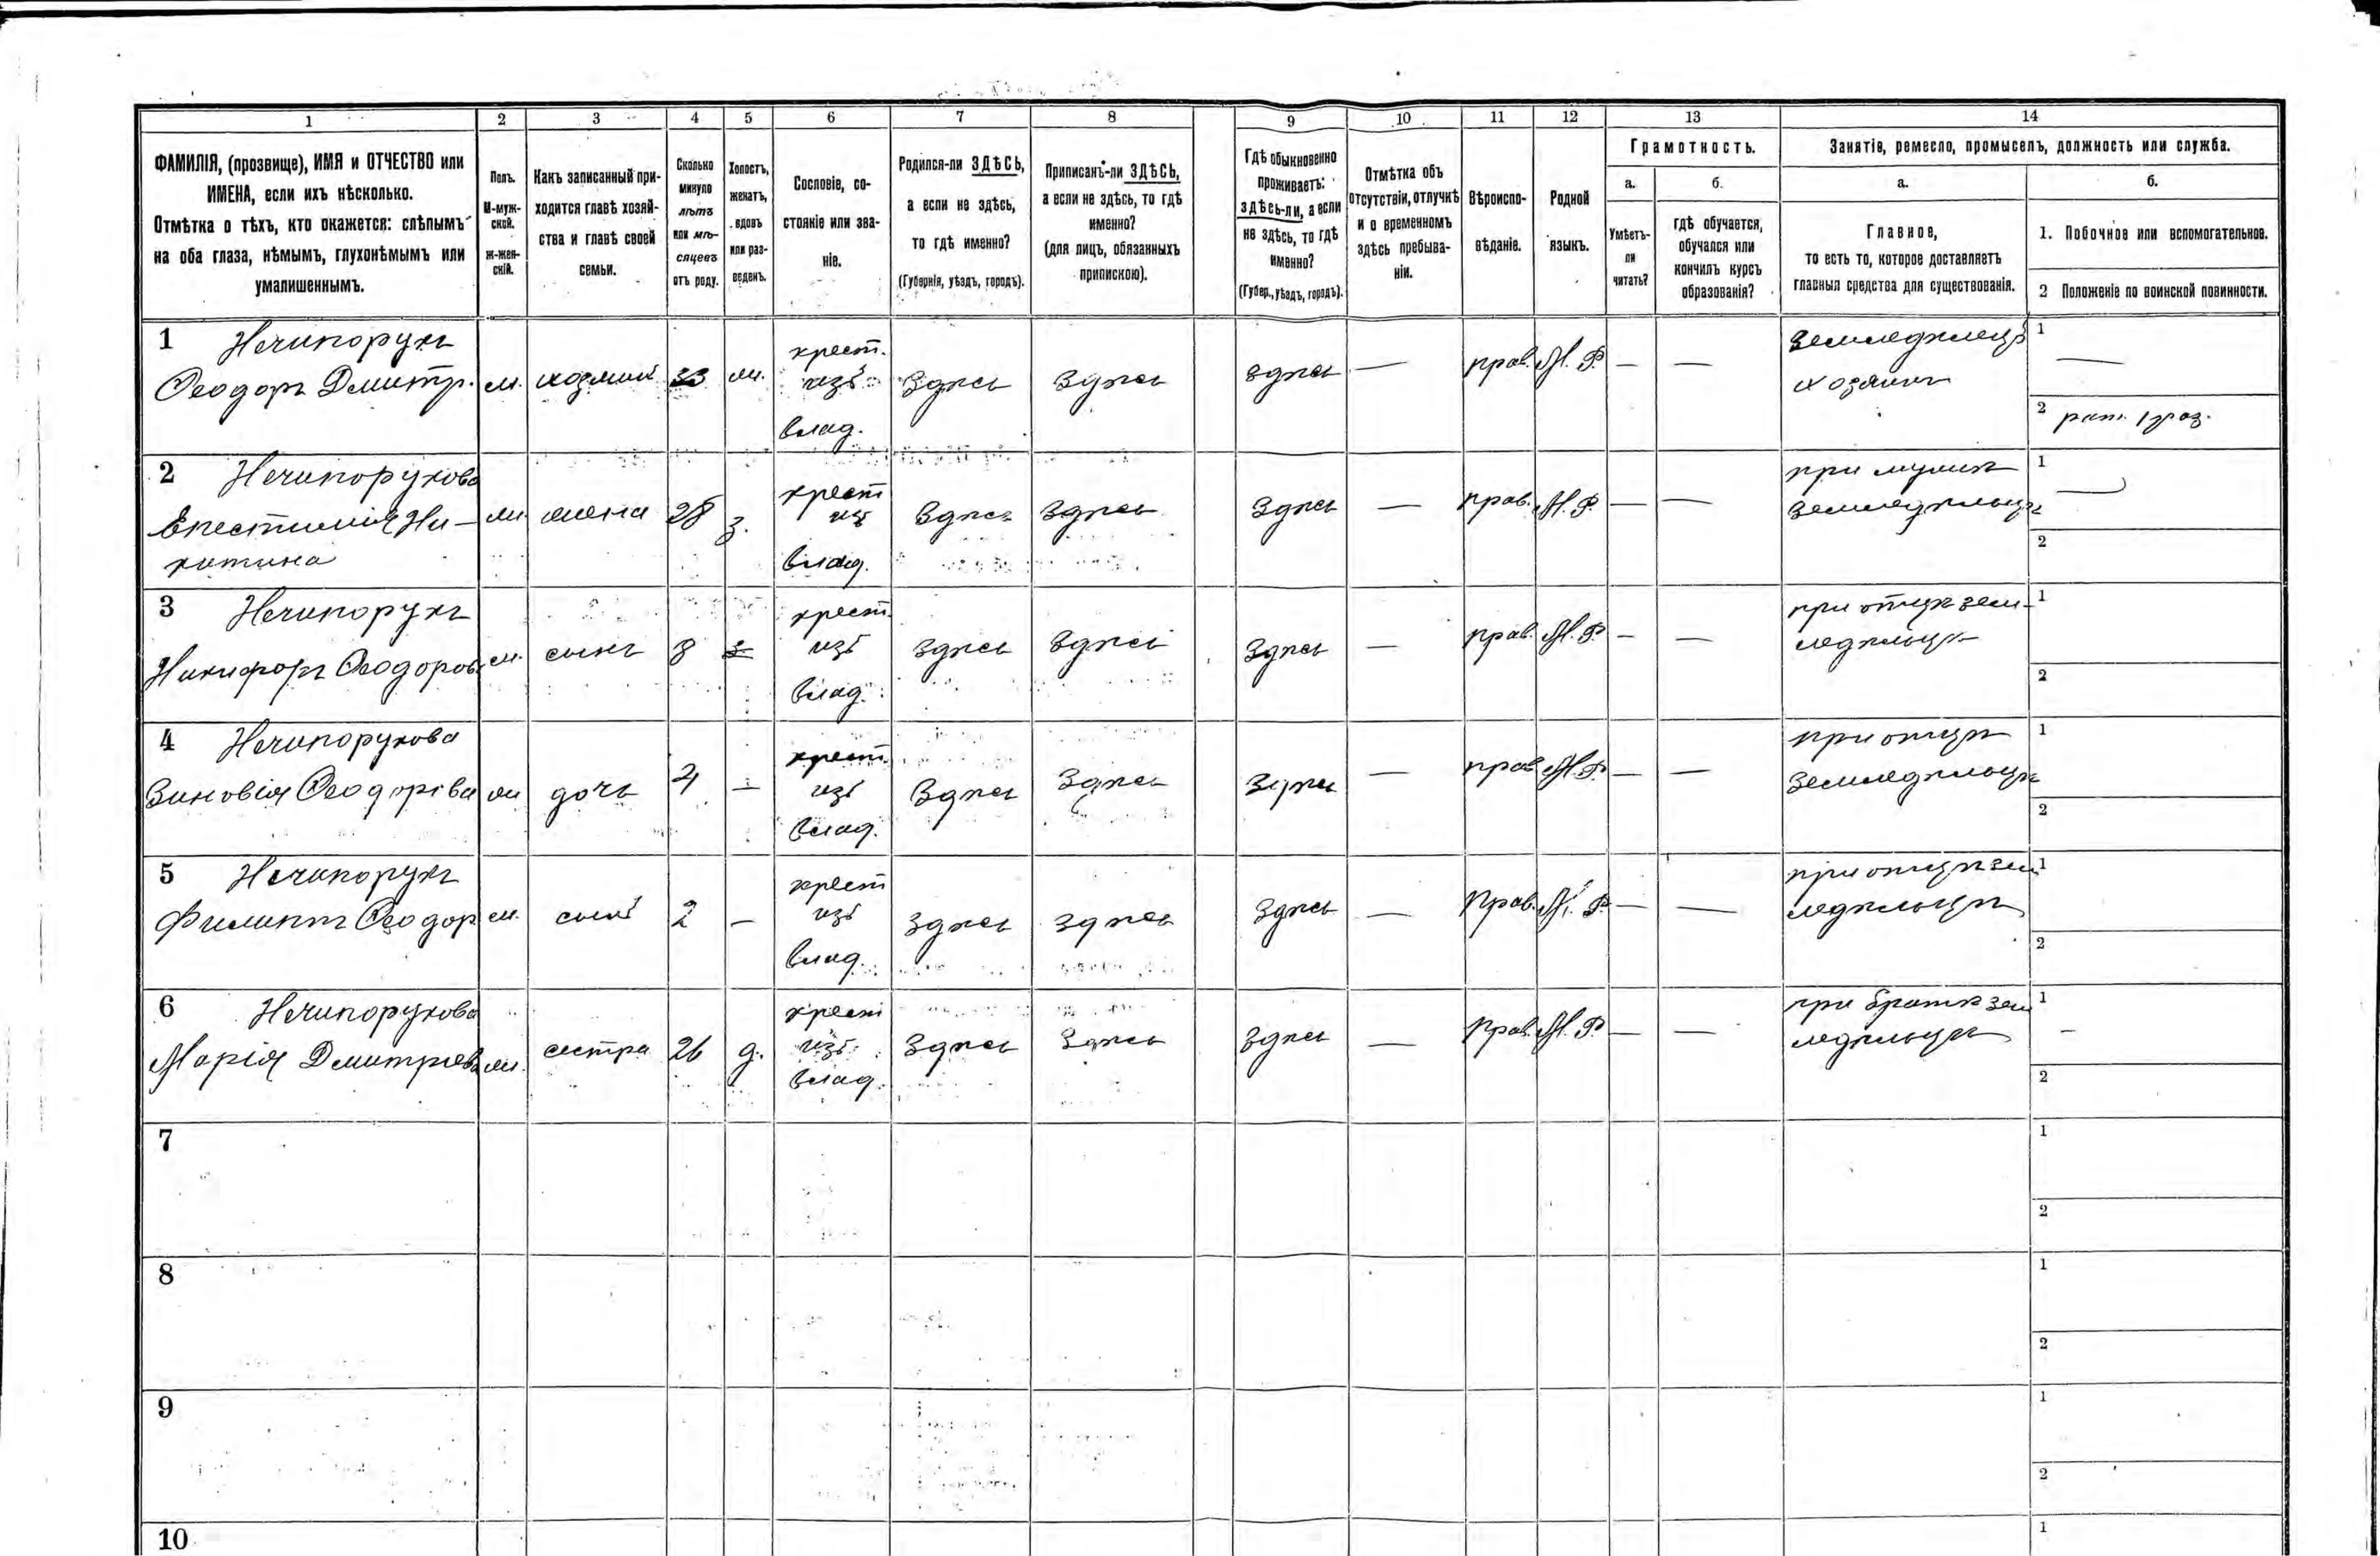 1 2 3 4 5 6 7 8 9 10 11 12 13 14
ФАМИЛІЯ, (прозвище), ИМЯ и ОТЧЕСТВО или
ИМЕНА, если ихъ нѣсколько.
Отмѣтка о тѣхъ, кто окажется: слѣпымъ
на оба глаза, нѣмымъ, глухонѣмымъ или
умалишеннымъ.
Полъ.
М-муж-
ской.
Ж-жен-
скій.
Какъ записанный при-
ходится главѣ хозяй-
ства и главѣ своей
семьи.
Сколько
минуло
лѣтъ
или мѣ-
сяцевъ
отъ роду.
Холостъ,
женатъ,
вдовъ
или раз-
веденъ.
Сословіе, со-
стояніе или зва-
ніе.
Родился-ли ЗДѢСЬ,
а если не здѣсь,
то гдѣ именно?
(Губернія, уѣздъ, городъ).
Приписанъ-ли ЗДѢСЬ,
а если не здѣсь, то гдѣ
именно?
(для лицъ, обязанныхъ
припискою).
Гдѣ обыкновенно
проживаетъ:
здѣсь-ли, а если
не здѣсь, то гдѣ
именно?
(Губер., уѣздъ, городъ).
Отмѣтка объ
отсутствіи, отлучкѣ
и о временномъ
здѣсь пребыва-
ніи.
Вѣроиспо-
вѣданіе.
Родной
языкъ.
Грамотность.
а.
Умѣетъ-
ли
читать?
б.
гдѣ обучается,
обучался или
кончилъ курсъ
образованія?
Занятіе, ремесло, промыселъ, должность или служба.
а.
Главное,
то есть то, которое доставляетъ
главныя средства для существованія.
б.
1. Побочное или вспомогательное.
2 Положеніе по воинской повинности.
1 Нечипорукъ
Ѳеодоръ Дмитр. м. хозяинъ 33 ж. крест. изъ влад. Здѣсь Здѣсь здѣсь — прав. М. Р. — — Земледѣлецъ хозяинъ 1 —
2 рат. 1 раз.
2 Нечипорукова
Епестимія Ни-
китина ж. жена 28 з. крест изъ влад. Здѣсь Здѣсь Здѣсь — прав. М. Р. — — при мужѣ земледѣльцѣ 1 —
2
3 Нечипорукъ
Никифоръ Ѳеодоров м. сынъ 8 крест. изъ влад. Здѣсь Здѣсь Здѣсь — прав. М. Р. — — при отцѣ зем-
ледѣльцѣ 1
2
4 Нечипорукова
Зиновія Ѳеодорова ж дочь 4 — крест. изъ влад. Здѣсь Здѣсь Здѣсь — прав. М. Р. — — при отцѣ
земледѣльцѣ 1
2
5 Нечипорукъ
Филиппъ Ѳеодор м. сынъ 2 — крест изъ влад. Здѣсь здѣсь Здѣсь — Прав. М. Р. — — при отцѣ зем
ледѣльцѣ 1
2
6 Нечипорукова
Марія Дмитріева ж. сестра 26 д. крест изъ влад. Здѣсь Здѣсь Здѣсь — Прав. М. Р. — — при братѣ зем
ледѣльцѣ 1 —
2
7 1
2
8 1
2
9 1
2
10 1